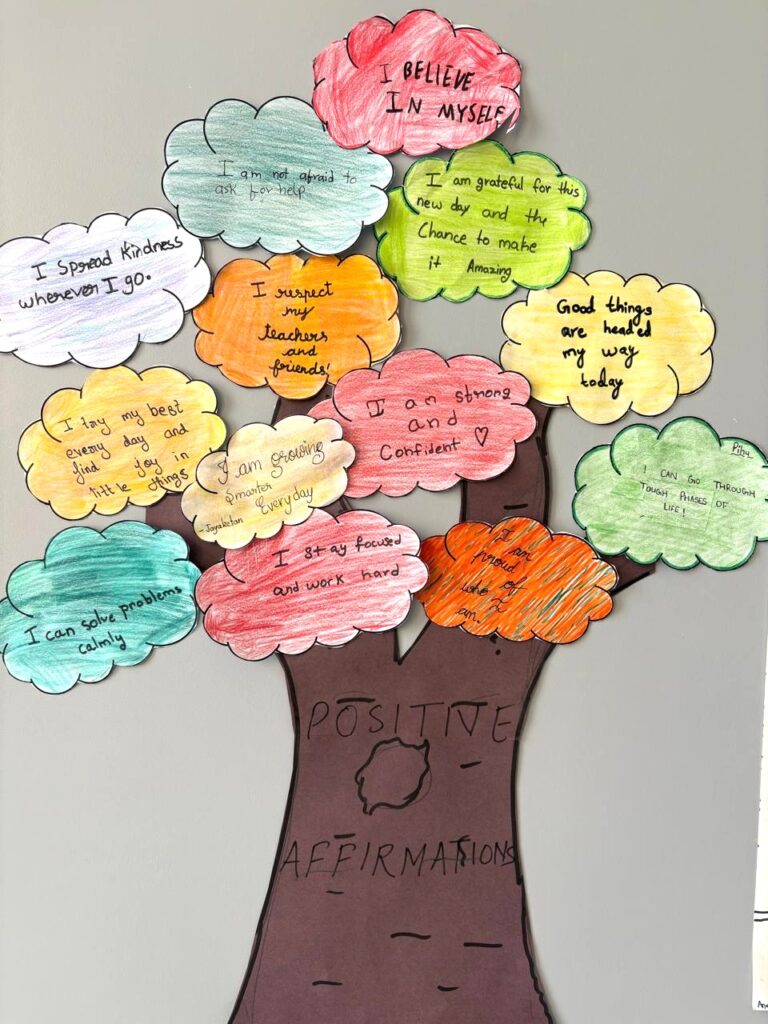 I BELIEVE
IN MYSELF
I am not afraid to
ask for help
I am grateful for this
new day and the
Chance to make
it Amazing
I Spread Kindness
wherever I go.
I respect
my
teachers
and
friends!
Good things
are headed
my way
today
I am strong
and
Confident ♡
I try my best
every day and
find joy in
little things
I am growing
Smarter
Everyday
- Jayaketan
Pihu
I CAN GO THROUGH
TOUGH PHASES OF
LIFE!
I stay focused
and work hard
I am
proud of
who I
am!
I can solve problems
calmly
POSITIVE
AFFIRMATIONS